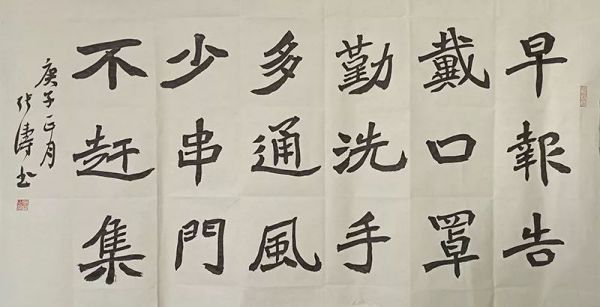 早報告
戴口罩
勤洗手
多通風
少串門
不赶集
庚子正月
濤书